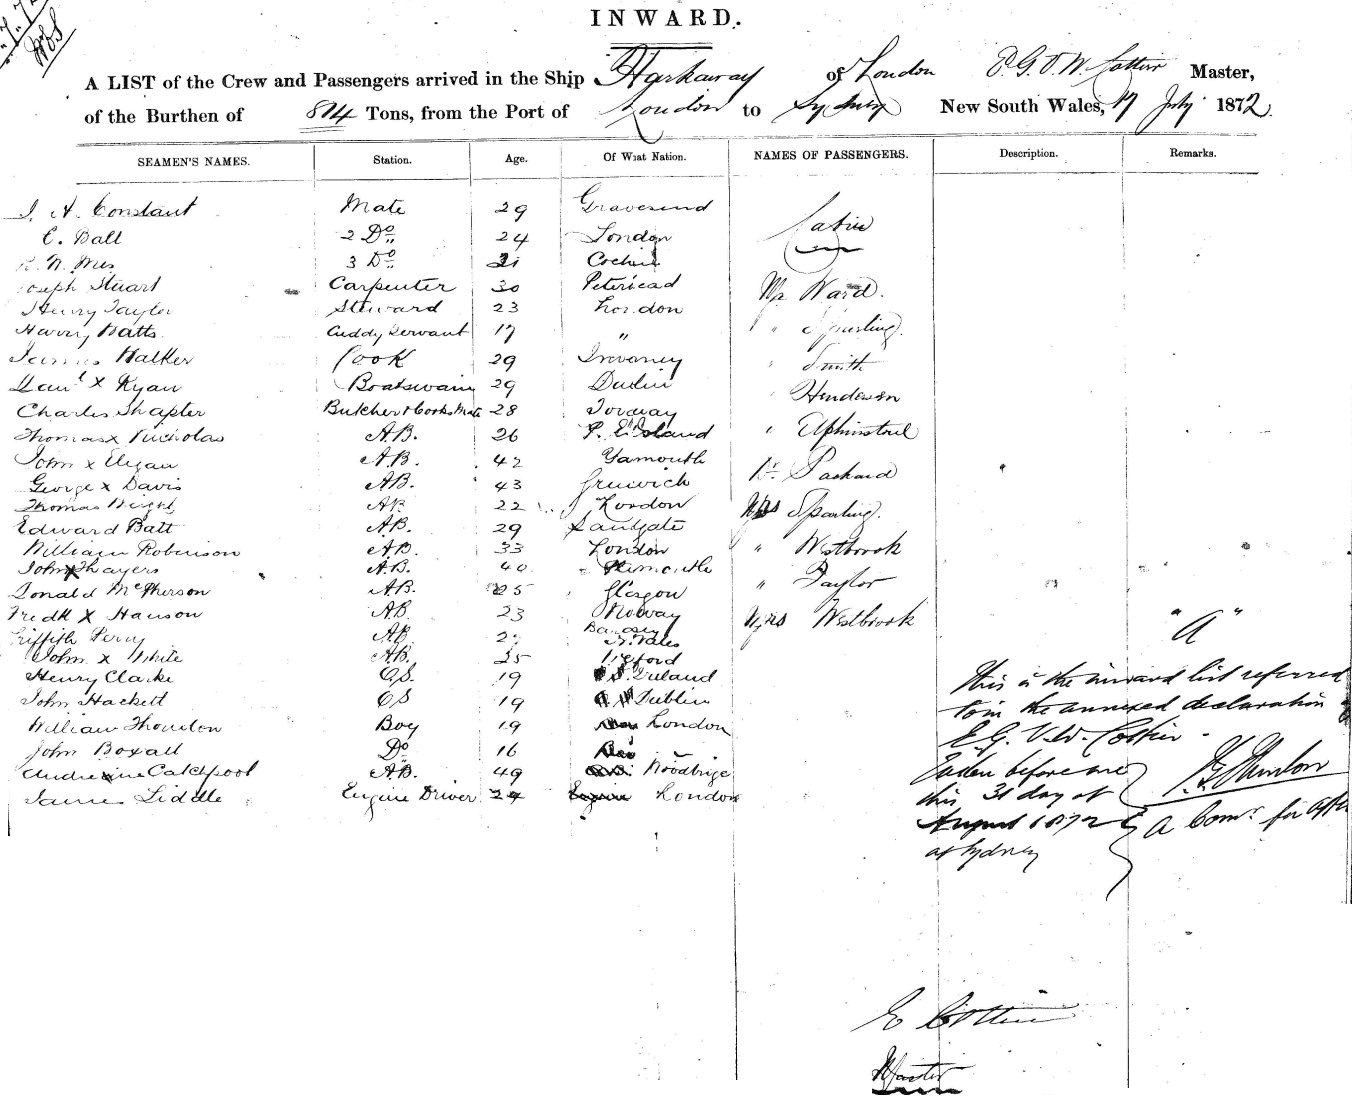 INWARD.
A LIST of the Crew and Passengers arrived in the Ship Harkaway of London E. G. V. W. Cottier Master,
of the Burthen of 814 Tons, from the Port of London to Sydney New South Wales, 17 July 1872.
SEAMEN'S NAMES. Station. Age. Of What Nation. NAMES OF PASSENGERS. Description. Remarks.
A. Constant Mate 29 Gravesend
E. Ball 2 Do 24 London Cabin
3 Do 21 Cochin
Joseph Stuart Carpenter 30 Peterhead Mr Ward.
Henry Taylor Steward 23 London
Harry Batts Cuddy Servant 17 " " Sparling.
James Walker Cook 29 " Smith
Danl x Ryan Boatswain 29 Dublin " Henderson
Charles Shapter Butcher & Cooks Mate 28 Torquay
Thomas x Nicholas A.B. 26 P. E. Island "
John x A.B. 42 Yamouth
George x Davis A.B. 43 Grenwich Dr. Packard
Thomas AB 22 London Mrs Sparling.
Edward Batt A.B. 29 Sandgate
William Robinson A.B. 33 London " Westbrook
John x Thayers A.B. 40
Donald McPherson A.B. 25 Glasgow " Taylor
Fredk x Hanson A.B. 23 Noway Mrs Westbrook
Griffith Perry AB N. Wales "A"
John x White A.B. 35
Henry Clarke OS. 19 Ireland This is the inward list referred
John Hackett OS 19 Dublin to in the annexed declaration of
William Boy 19 London E. G. V. W. Cottier
John Boxall Do 16
Catchpool A.B. 49 Woodbrige Taken before me
James Liddle Engine Driver 24 London this 31 day of
August 1872 A Comr. for
at Sydney
E Cottier
Master